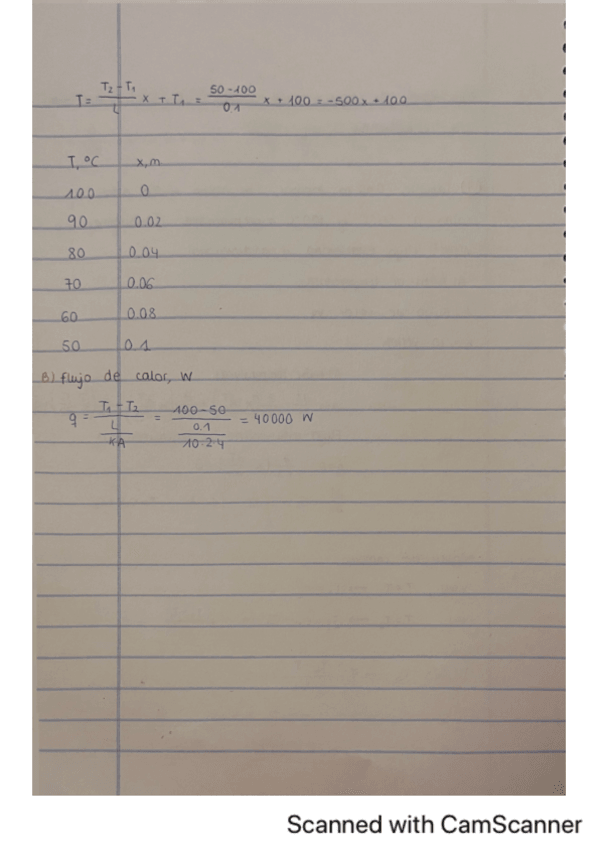 T = (T₂ - T₁)/L x + T₁ = (50 - 100)/0.1 x + 100 = -500x + 100
T, °C x, m
100 0
90 0.02
80 0.04
70 0.06
60 0.08
50 0.1
B) flujo de calor, W
q = (T₁ - T₂)/(L/(K·A)) = (100 - 50)/(0.1/(10·2·4)) = 40000 W
Scanned with CamScanner